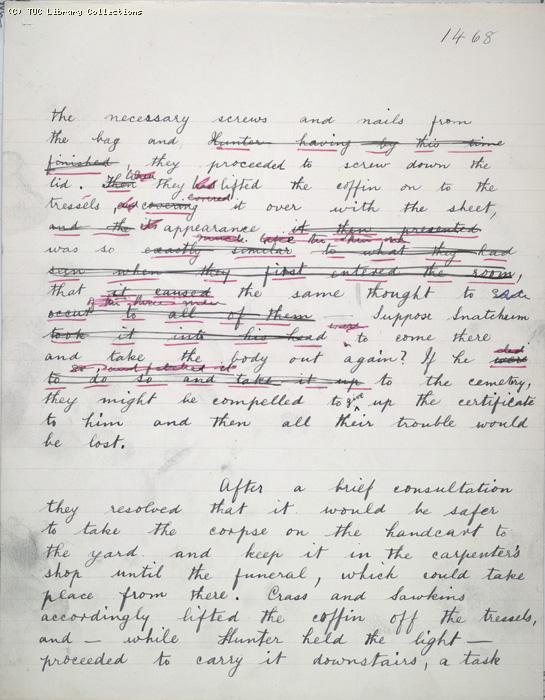 (C) TUC Library Collections
1468
the necessary screws and nails from
the bag and Hunter having by this time
finished, they proceeded to screw down the
lid. Then When they had lifted the coffin on to the
tressels, and covering covered it over with the sheet,
and the its appearance it then presented
was so exactly similar to what they had
seen when they first entered the room,
that it caused the same thought to
occur to all of them Suppose Snatchum
took it into his head were to come there
and take the body out again? If he were did
so, and fetched it
to do so and take it up to the cemetry,
they might be compelled to give up the certificate
to him and then all their trouble would
be lost.
After a brief consultation
they resolved that it would be safer
to take the corpse on the handcart to
the yard and keep it in the carpenter's
shop until the funeral, which could take
place from there. Crass and Sawkins
accordingly lifted the coffin off the tressels,
and — while Hunter held the light —
proceeded to carry it downstairs, a task